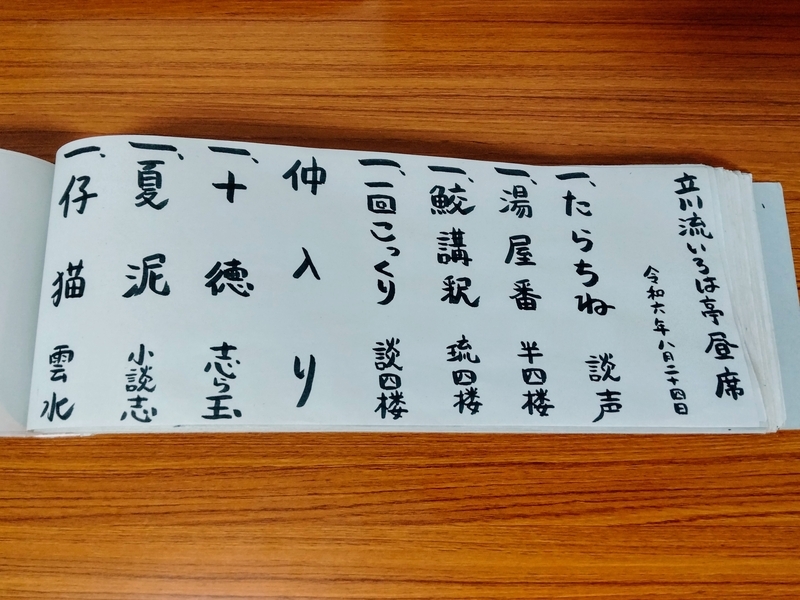 立川流いろは亭昼席
令和六年八月二十四日
一、たらちね 談声
一、湯屋番 半四楼
一、鮫講釈 琉四楼
一、一回こっくり 談四楼
仲入り
一、十徳 志ら玉
一、夏泥 小談志
一、仔猫 雲水